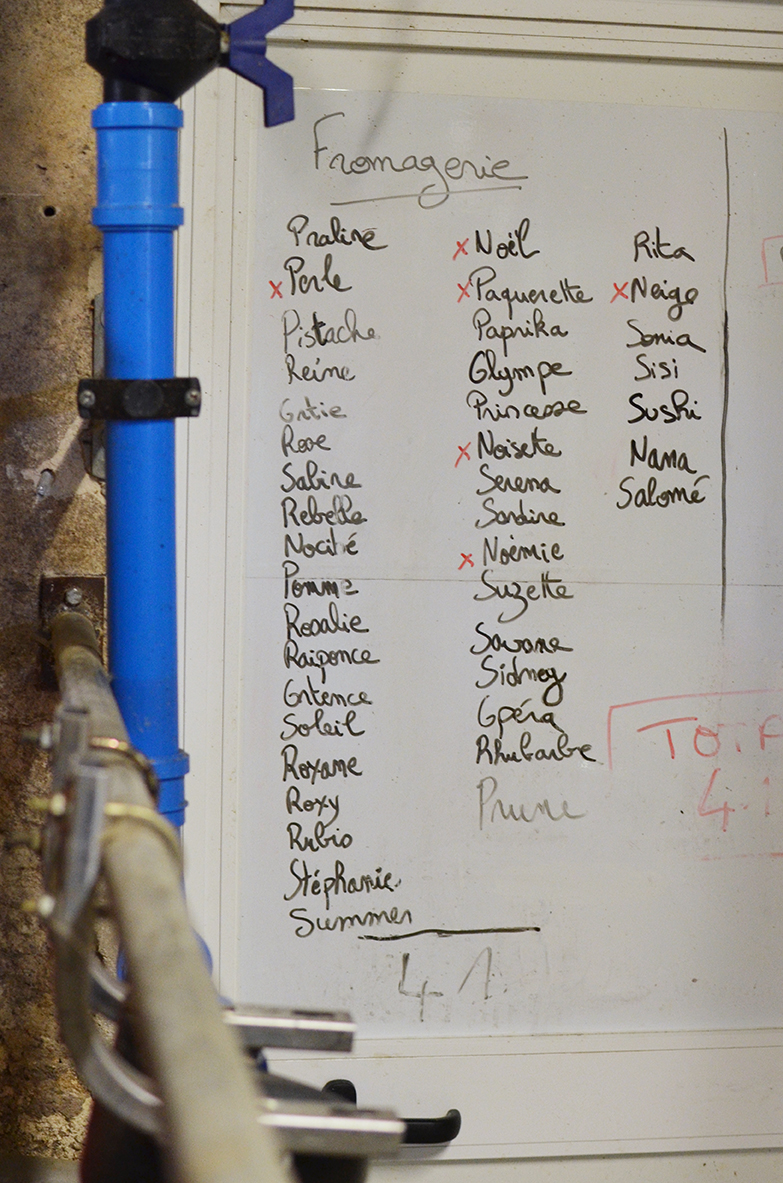 Fromagerie
Praline
x Perle
Pistache
Reine
Ortie
Rose
Sabine
Rebelle
Pomme
Rosalie
Raiponce
Soleil
Roxane
Roxy
Rubio
Stéphanie
Summer
x Noël
x Paquerette
Paprika
Olympe
Princesse
x Noisette
Serena
Sardine
x Noémie
Suzette
Savane
Sidney
Opéra
Rhubarbe
Prune
Rita
x Neige
Sonia
Sisi
Sushi
Nana
Salomé
41